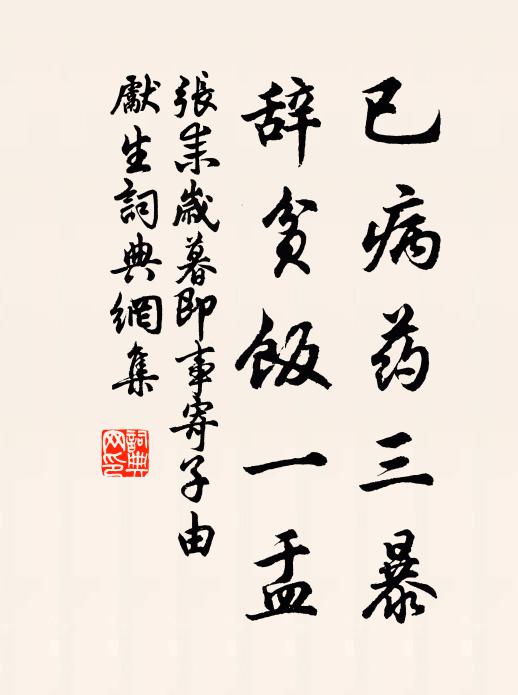 已病药三暴
辞贫飯一盂
張耒歲暮即事寄子由
獻生詞典網集
詞典网印